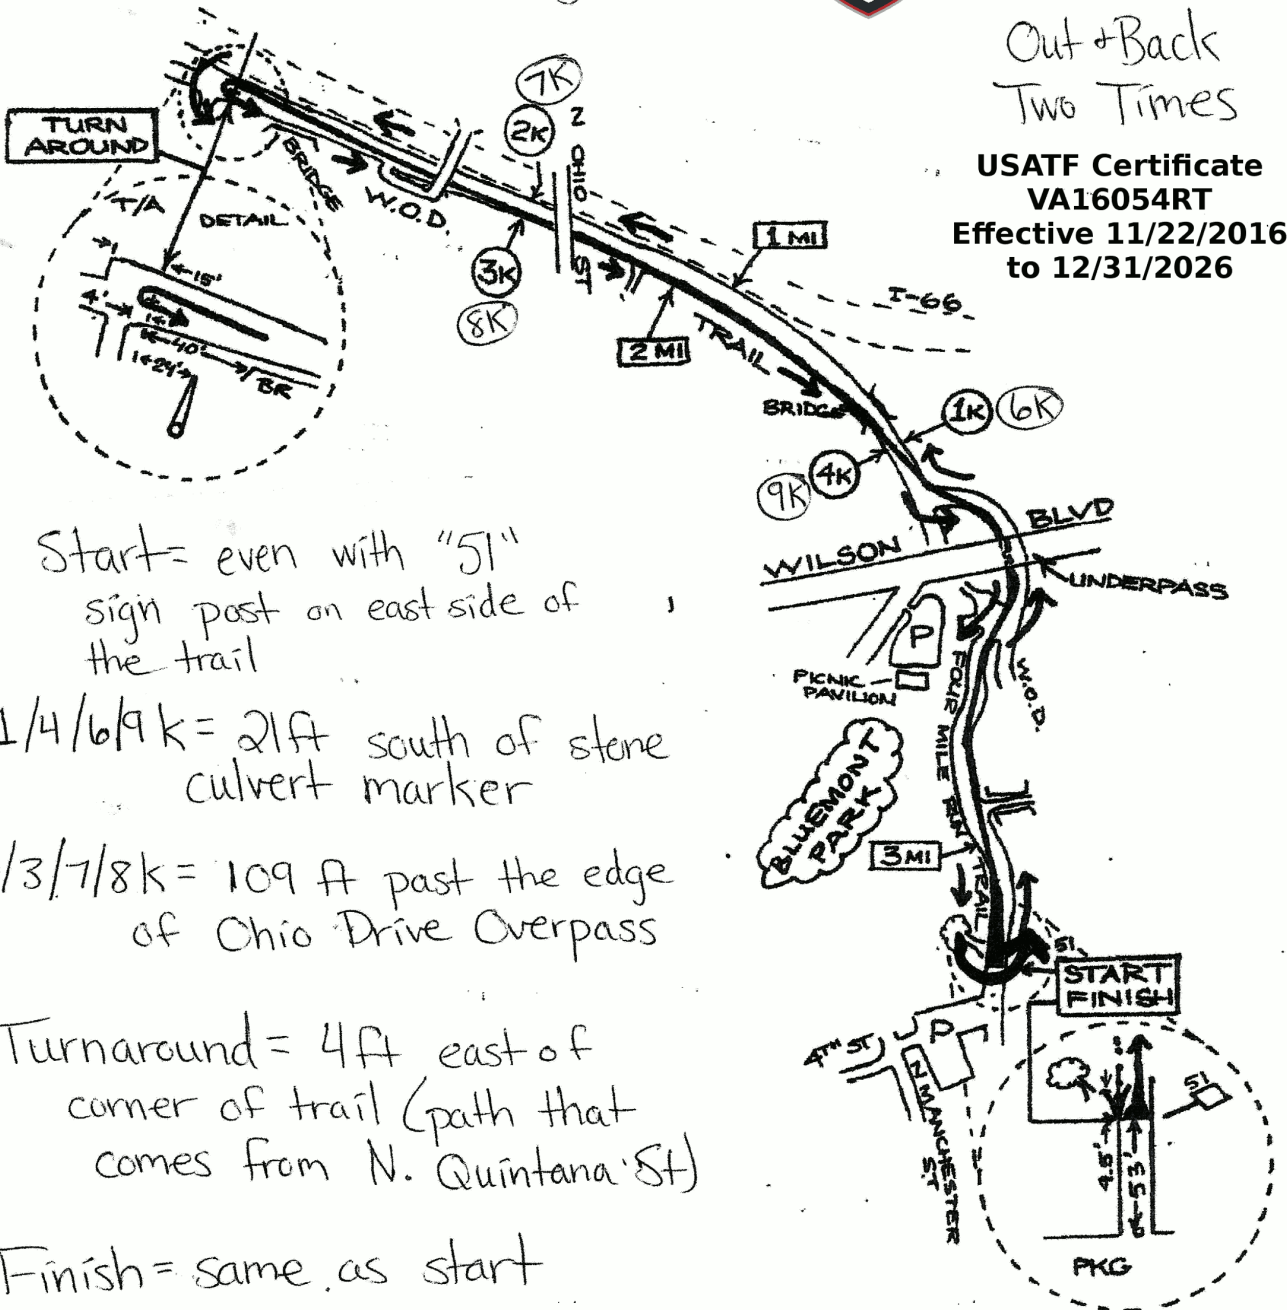 Out + Back
Two Times
USATF Certificate
VA16054RT
Effective 11/22/2016
to 12/31/2026
7K
2K
N OHIO ST
TURN
AROUND
BRIDGE
W.O.D.
T/A
DETAIL
15'
4'
40'
24'
BR
3K
8K
1 MI
I-66
2 MI
TRAIL
BRIDGE
1K
6K
4K
9K
WILSON BLVD
UNDERPASS
P
PICNIC
PAVILION
W.O.D.
FOUR MILE RUN TRAIL
BLUEMONT
PARK
3 MI
51
START
FINISH
P
4TH ST
N MANCHESTER
ST
51
4.5'
53'
PKG
Start= even with "51"
sign post on east side of
the trail
1/4/6/9k= 21ft south of stone
culvert marker
/3/7/8k= 109 ft past the edge
of Ohio Drive Overpass
Turnaround= 4ft east of
corner of trail (path that
comes from N. Quintana St)
Finish= same as start